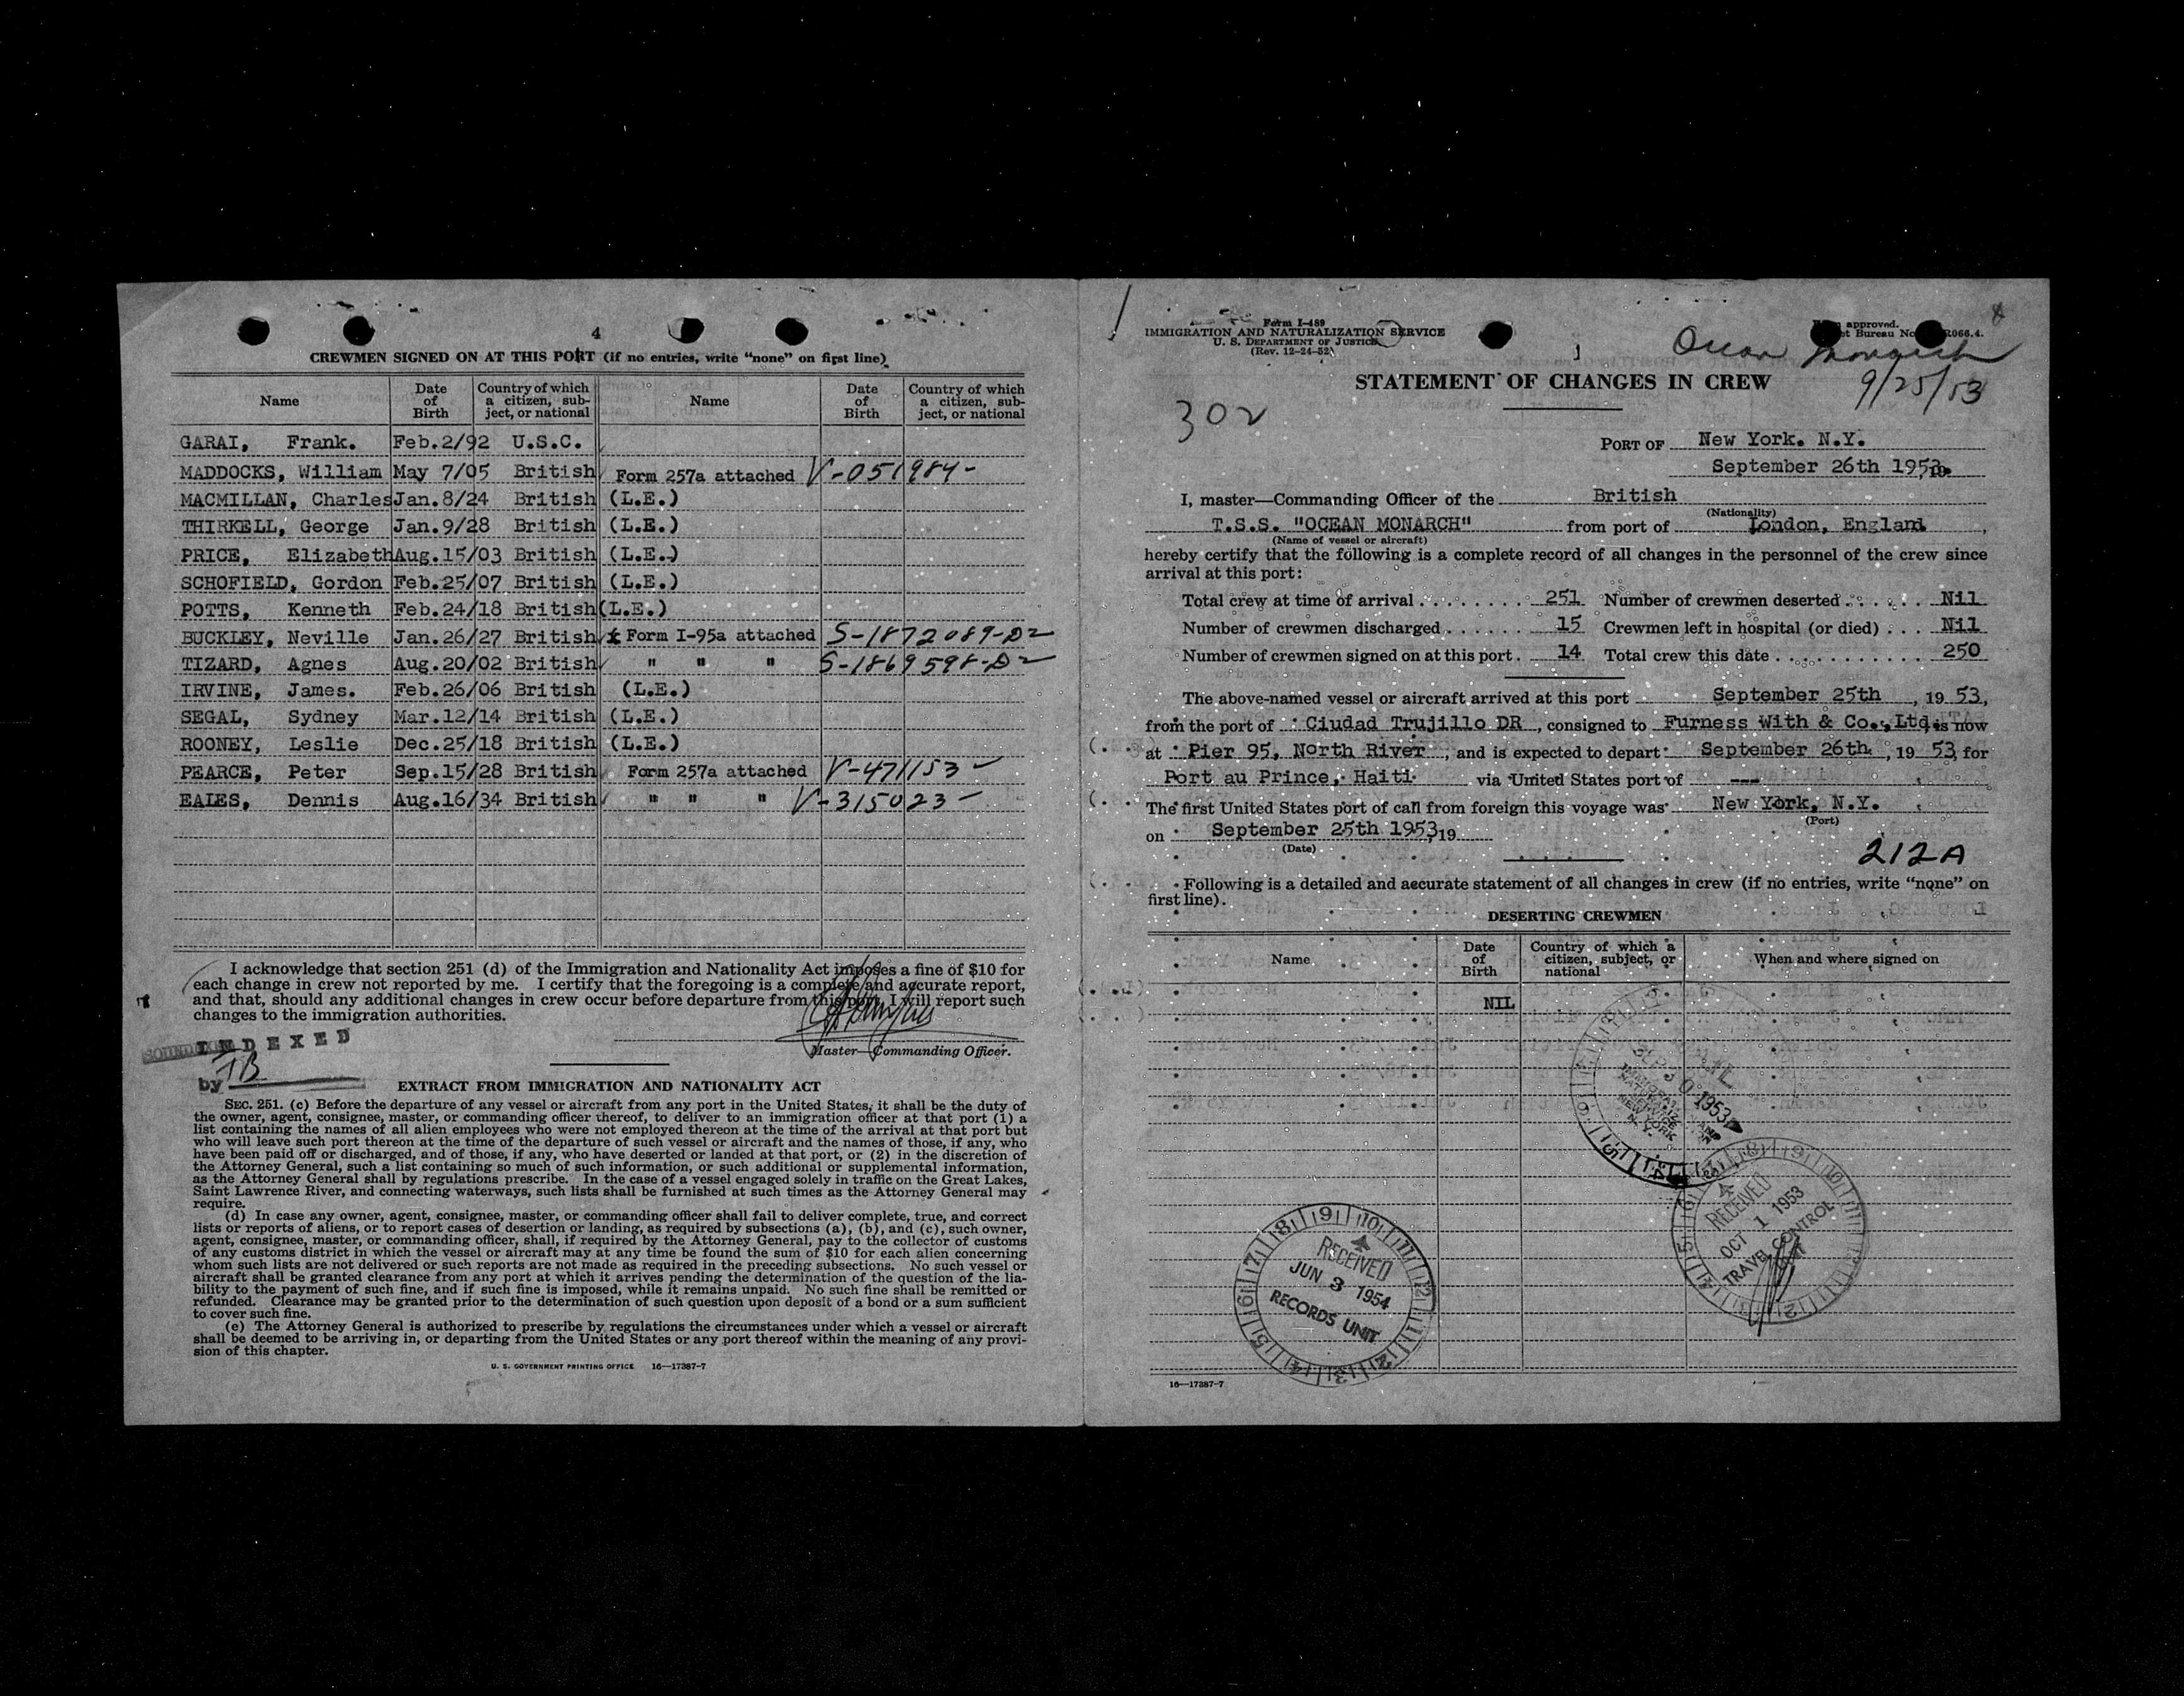 4
CREWMEN SIGNED ON AT THIS PORT (if no entries, write “none” on first line)
Name Date of Birth Country of which a citizen, subject, or national Name Date of Birth Country of which a citizen, subject, or national
GARAI, Frank. Feb.2/92 U.S.C.
MADDOCKS, William May 7/05 British Form 257a attached V-051984-
MACMILLAN, Charles Jan.8/24 British (L.E.)
THIRKELL, George Jan.9/28 British (L.E.)
PRICE, Elizabeth Aug.15/03 British (L.E.)
SCHOFIELD, Gordon Feb.25/07 British (L.E.)
POTTS, Kenneth Feb.24/18 British (L.E.)
BUCKLEY, Neville Jan.26/27 British Form I-95a attached S-1872089-D2
TIZARD, Agnes Aug.20/02 British " " " S-1869598-D2
IRVINE, James. Feb.26/06 British (L.E.)
SEGAL, Sydney Mar.12/14 British (L.E.)
ROONEY, Leslie Dec.25/18 British (L.E.)
PEARCE, Peter Sep.15/28 British Form 257a attached V-471153-
EALES, Dennis Aug.16/34 British " " " V-315023-
I acknowledge that section 251 (d) of the Immigration and Nationality Act imposes a fine of $10 for
each change in crew not reported by me. I certify that the foregoing is a complete and accurate report,
and that, should any additional changes in crew occur before departure from this port, I will report such
changes to the immigration authorities.
INDEXED
Master—Commanding Officer.
by TB
EXTRACT FROM IMMIGRATION AND NATIONALITY ACT
SEC. 251. (c) Before the departure of any vessel or aircraft from any port in the United States, it shall be the duty of
the owner, agent, consignee, master, or commanding officer thereof, to deliver to an immigration officer at that port (1) a
list containing the names of all alien employees who were not employed thereon at the time of the arrival at that port but
who will leave such port thereon at the time of the departure of such vessel or aircraft and the names of those, if any, who
have been paid off or discharged, and of those, if any, who have deserted or landed at that port, or (2) in the discretion of
the Attorney General, such a list containing so much of such information, or such additional or supplemental information,
as the Attorney General shall by regulations prescribe. In the case of a vessel engaged solely in traffic on the Great Lakes,
Saint Lawrence River, and connecting waterways, such lists shall be furnished at such times as the Attorney General may
require.
(d) In case any owner, agent, consignee, master, or commanding officer shall fail to deliver complete, true, and correct
lists or reports of aliens, or to report cases of desertion or landing, as required by subsections (a), (b), and (c), such owner,
agent, consignee, master, or commanding officer, shall, if required by the Attorney General, pay to the collector of customs
of any customs district in which the vessel or aircraft may at any time be found the sum of $10 for each alien concerning
whom such lists are not delivered or such reports are not made as required in the preceding subsections. No such vessel or
aircraft shall be granted clearance from any port at which it arrives pending the determination of the question of the lia-
bility to the payment of such fine, and if such fine is imposed, while it remains unpaid. No such fine shall be remitted or
refunded. Clearance may be granted prior to the determination of such question upon deposit of a bond or a sum sufficient
to cover such fine.
(e) The Attorney General is authorized to prescribe by regulations the circumstances under which a vessel or aircraft
shall be deemed to be arriving in, or departing from the United States or any port thereof within the meaning of any provi-
sion of this chapter.
U. S. GOVERNMENT PRINTING OFFICE 16—17387-7
Form I-489
IMMIGRATION AND NATURALIZATION SERVICE
U. S. DEPARTMENT OF JUSTICE
(Rev. 12-24-52)
approved.
Bureau No. R066.4.
Ocean Monarch
9/25/53
STATEMENT OF CHANGES IN CREW
302
PORT OF New York. N.Y.
September 26th 1953, 19
I, master—Commanding Officer of the British
(Nationality)
T.S.S. "OCEAN MONARCH" from port of London, England,
(Name of vessel or aircraft)
hereby certify that the following is a complete record of all changes in the personnel of the crew since
arrival at this port:
Total crew at time of arrival 251 Number of crewmen deserted Nil
Number of crewmen discharged 15 Crewmen left in hospital (or died) Nil
Number of crewmen signed on at this port. 14 Total crew this date 250
The above-named vessel or aircraft arrived at this port September 25th, 19 53,
from the port of Ciudad Trujillo DR, consigned to Furness With & Co., Ltd. is now
at Pier 95, North River, and is expected to depart September 26th, 19 53, for
Port au Prince, Haiti via United States port of ---
The first United States port of call from foreign this voyage was New York, N.Y.
(Port)
on September 25th 1953, 19
(Date)
212A
Following is a detailed and accurate statement of all changes in crew (if no entries, write “none” on
first line).
DESERTING CREWMEN
Name Date of Birth Country of which a citizen, subject, or national When and where signed on
NIL
SEP 30 1953
IMMIGRATION AND
NATURALIZATION
SERVICE
NEW YORK
N. Y.
RECEIVED
OCT 1 1953
TRAVEL CONTROL
RECEIVED
JUN 3 1954
RECORDS UNIT
16—17387-7